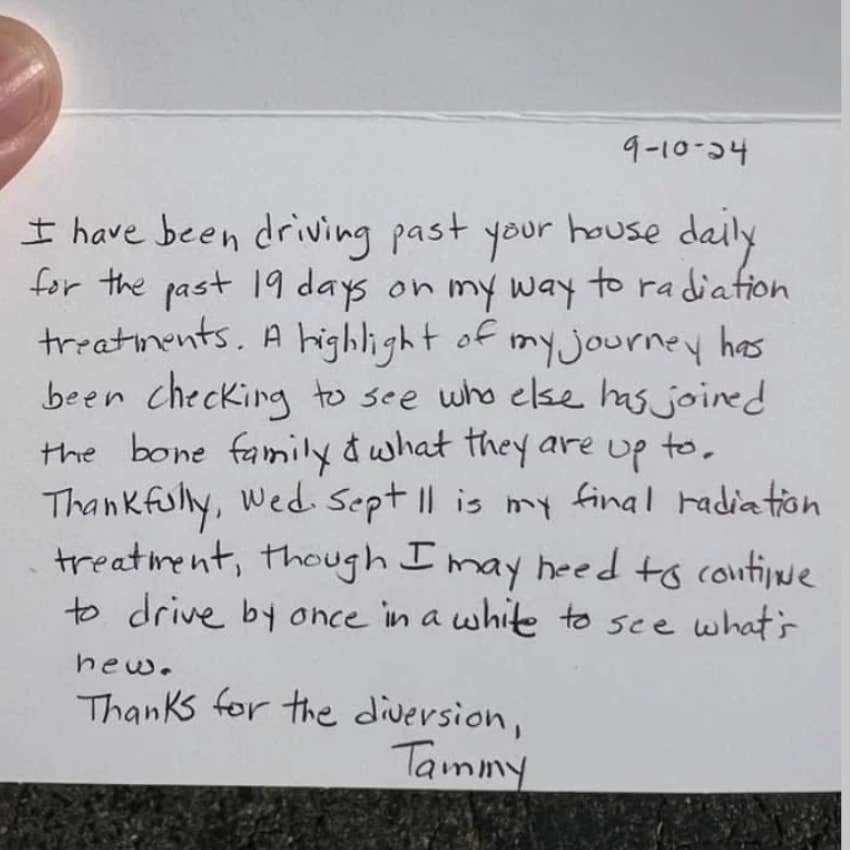 9-10-24
I have been driving past your house daily
for the past 19 days on my way to radiation
treatments. A highlight of my journey has
been checking to see who else has joined
the bone family & what they are up to.
Thankfully, Wed. Sept 11 is my final radiation
treatment, though I may need to continue
to drive by once in a while to see what's
new.
Thanks for the diversion,
Tammy